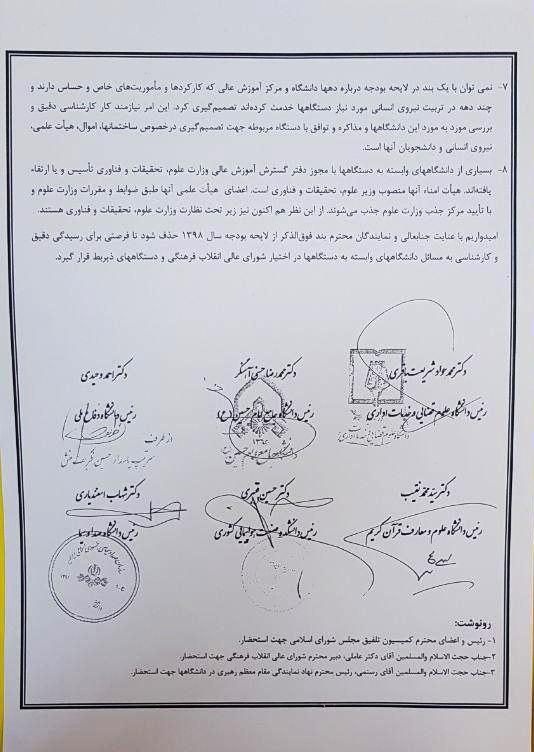 ۷- نمی توان با یک بند در لایحه بودجه درباره دهها دانشگاه و مرکز آموزش عالی که کارکردها و مأموریت‌های خاص و حساس دارند و
چند دهه در تربیت نیروی انسانی مورد نیاز دستگاهها خدمت کرده‌اند تصمیم‌گیری کرد. این امر نیازمند کار کارشناسی دقیق و
بررسی مورد به مورد این دانشگاهها و مذاکره و توافق با دستگاه مربوطه جهت تصمیم‌گیری درخصوص ساختمانها، اموال، هیأت علمی،
نیروی انسانی و دانشجویان آنها است.
۸- بسیاری از دانشگاههای وابسته به دستگاهها با مجوز دفتر گسترش آموزش عالی وزارت علوم، تحقیقات و فناوری تأسیس و یا ارتقاء
یافته‌اند. هیأت امناء آنها منصوب وزیر علوم، تحقیقات و فناوری است. اعضای هیأت علمی آنها طبق ضوابط و مقررات وزارت علوم و
با تأیید مرکز جذب وزارت علوم جذب می‌شوند. از این نظر هم اکنون نیز زیر تحث نظارت وزارت علوم، تحقیقات و فناوری هستند.
امیدواریم با عنایت جنابعالی و نمایندگان محترم بند فوق‌الذکر از لایحه بودجه سال ۱۳۹۸ حذف شود تا فرصتی برای رسیدگی دقیق
و کارشناسی به مسائل دانشگاههای وابسته به دستگاهها در اختیار شورای عالی انقلاب فرهنگی و دستگاههای ذیربط قرار گیرد.
دکتر محمدجواد شریعت باقری
رئیس دانشگاه علوم قضایی و خدمات اداری
دکتر محمدرضا حسنی آهنگر
رئیس دانشگاه جامع امام حسین (ع)
دکتر احمد وحیدی
رئیس دانشگاه دفاع ملی
از طرف
دکتر سید محمد نقیب
رئیس دانشگاه علوم و معارف قرآن کریم
دکتر حسین قنبری
رئیس دانشکده صنعت هواپیمایی کشوری
دکتر شهاب اسفندیاری
رئیس دانشگاه صدا و سیما
رونوشت:
۱- رئیس و اعضای محترم کمیسیون تلفیق مجلس شورای اسلامی جهت استحضار.
۲-جناب حجت الاسلام والمسلمین آقای دکتر عاملی، دبیر محترم شورای عالی انقلاب فرهنگی جهت استحضار.
۳-جناب حجت الاسلام والمسلمین آقای رستمی، رئیس محترم نهاد نمایندگی مقام معظم رهبری در دانشگاهها جهت استحضار.